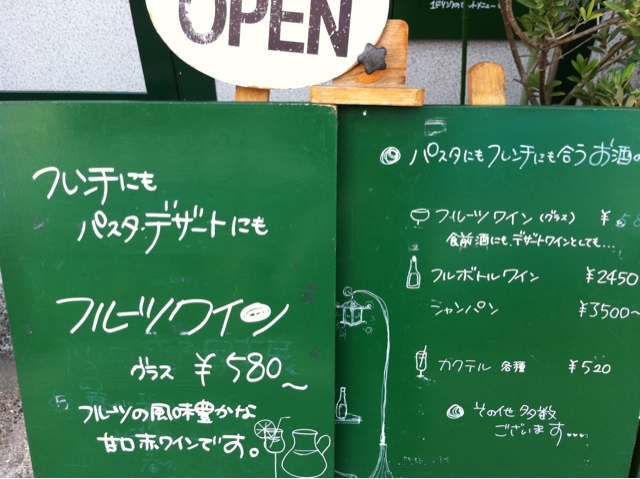 OPEN
フレンチにも
パスタ・デザートにも
フルーツワイン
グラス ¥580~
フルーツの風味豊かな
甘口赤ワインです。
パスタにもフレンチにも合うお酒
フルーツワイン(グラス) ¥580
食前酒にもデザートワインとしても...
フルボトルワイン ¥2450
シャンパン ¥3500~
カクテル 各種 ¥520
その他 多数
ございます....